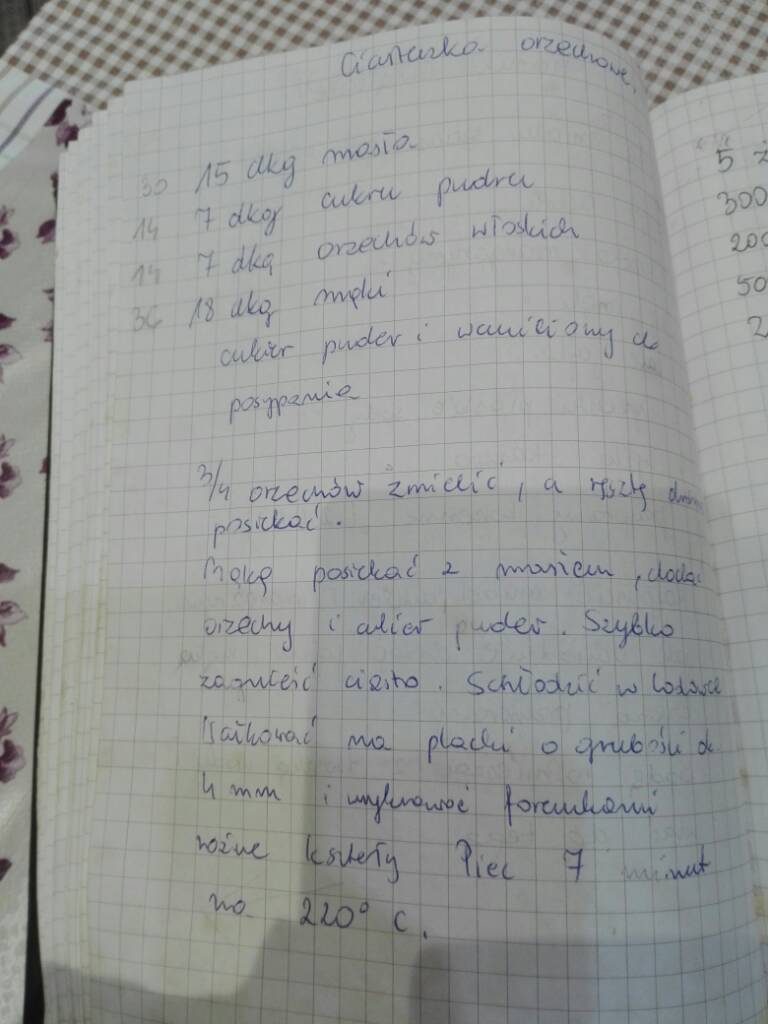 Ciasteczka orzechowe.
30 15 dkg masła
14 7 dkg cukru pudru
14 7 dkg orzechów włoskich
36 18 dkg mąki
cukier puder i waniliowy do
posypania
3/4 orzechów zmielić, a resztę
posiekać.
Mąkę posiekać z masłem, dodać
orzechy i cukier puder. Szybko
zagnieść ciasto. Schłodzić w lodówce
Wałkować na placki o grubości do
4 mm i wykrawać foremkami
różne kształty Piec 7 minut
na 220° C.
5 ż
300
200
50
2